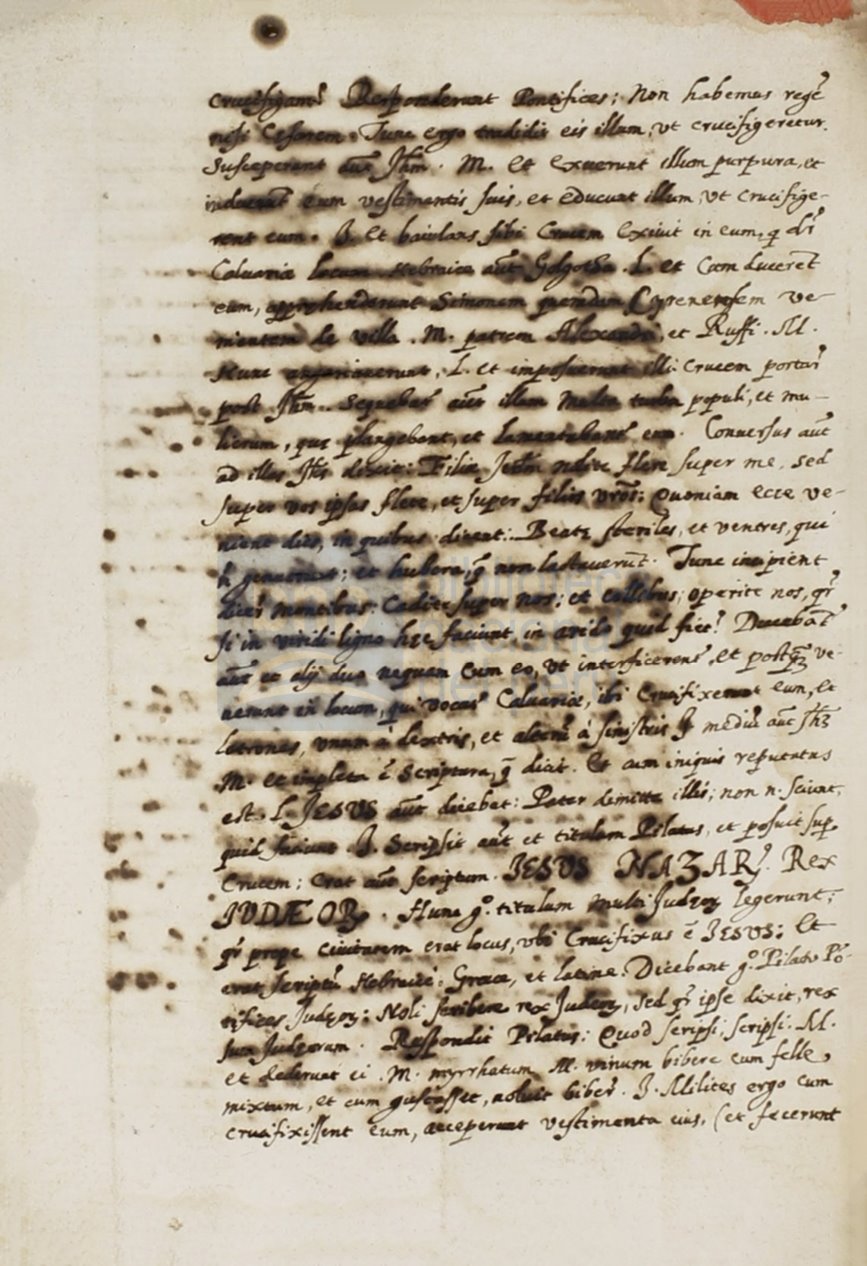 crucifigam? Responderunt Pontifices; Non habemus regẽ
nisi Cesarem. Tunc ergo tradidit eis illum, vt crucifigeretur.
Susceperunt aut̃ Jhm̃. M. et Exuerunt illum purpura, et
induerunt eum vestimentis suis, et educunt illum, vt crucifige-
rent eum. J. Et baiulans sibi Crucem Exiuit in eum, q dr̃
Caluariæ locum Hebraicè aut̃ Golgotha. L. et Cum ducerẽt
eum, apprehenderunt Simonem quendam Cyrenensem ve-
nientem de villa. M. patrem Alexandri, et Ruffi. M.
Hunc angariauerunt, L. et imposuerunt illi Crucem portar̃
post Jhm̃. Sequebat̃ aut̃ illum multa turba populi, et mu-
lierum, quę plangebant, et lamentabant̃ eum. Conuersus aut̃
ad illas Jhs̃ dixit: Filiæ Jerlm̃ nolite flere super me, sed
super vos ipsas flete, et super filios vrõs; Quoniam ecce ve-
nient dies, in quibus dicent: Beatę steriles, et ventres, qui
ñ genuerunt; et hubera, q̃ non lactauerũt. Tunc incipient
dicer̃ montibus: Cadite super nos; et collibus; operite nos, qr̃
si in viridi ligno hęc faciunt, in arido quid fiet? Ducebãt̃
aut̃ et alij duo nequam cum eo, vt interficerent̃. et postq̃z ve-
nerunt in locum, qui vocat̃ Caluariæ, ibi Crucifixerunt eum, et
latrones, vnum à dextris, et alterũ à sinistris J. mediũ aut̃ Jhz̃
M. et impleta ẽ Scriptura, q̃ dicit. Et cum iniquis reputatus
est. L. JESUS aut̃ dicebat: Pater dimitte illis; non n. sciunt,
quid faciunt J. Scripsit aut̃ et titulum Pilatus, et posuit sup̃
Crucem; Erat aut̃ scriptum. JESUS NAZARꝫ. Rex
JUDÆORꝫ. Hunc gº. titulum multi Judęoꝝ legerunt;
qr̃ prope ciuitatem erat locus, vbi Crucifixus ẽ JESUS; Et
erat scriptũ Hebraicè, Græce, et latine. Dicebant gº. Pilato Põ-
tifices Judęoꝝ: Noli scribere rex Judęoꝝ, sed qr̃ ipse dixit, rex
sum Judęorum. Respondit Pilatus: Quod scripsi, scripsi. M.
et dederunt ei. M. myrrhatum M. vinum bibere cum felle,
mixtum, et cum gustasset, noluit biber̃. J. Milites ergo cum
crucifixissent eum, acceperunt vestimenta eius, (et fecerunt